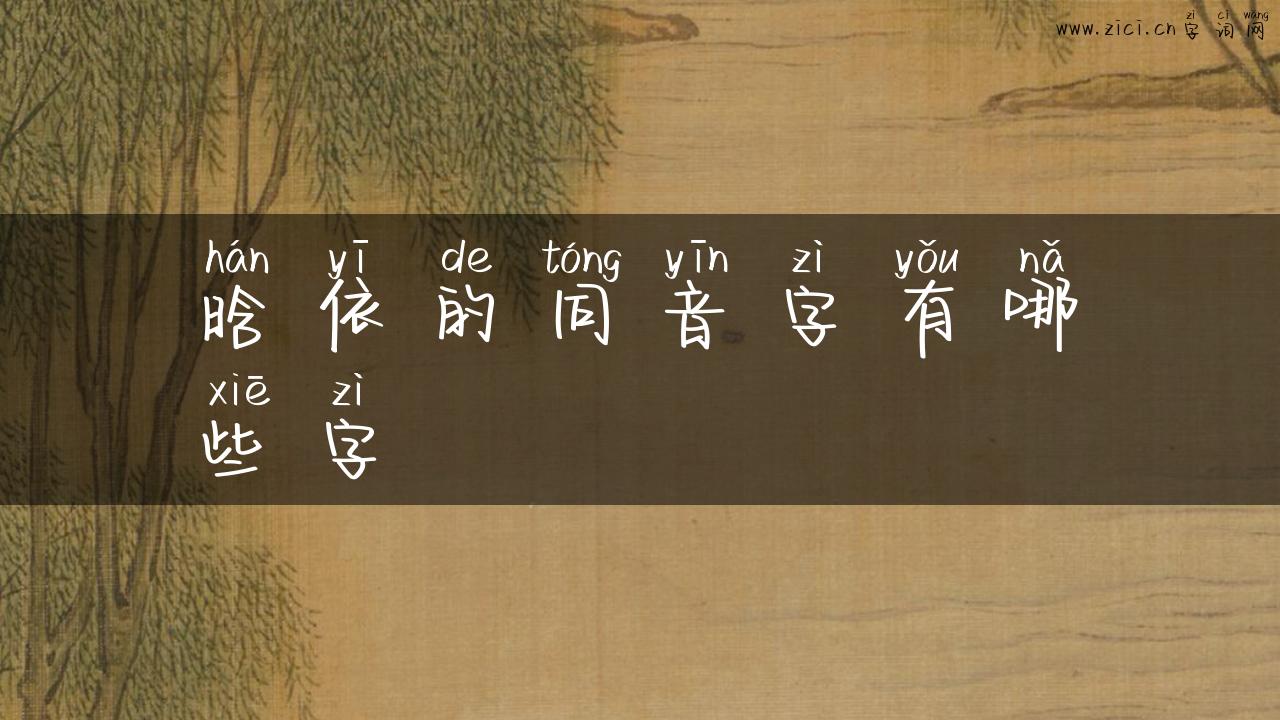 zì cí wǎng
www.zici.cn 字词网
hán yī de tóng yīn zì yǒu nǎ
晗依的同音字有哪
xiē zì
些字